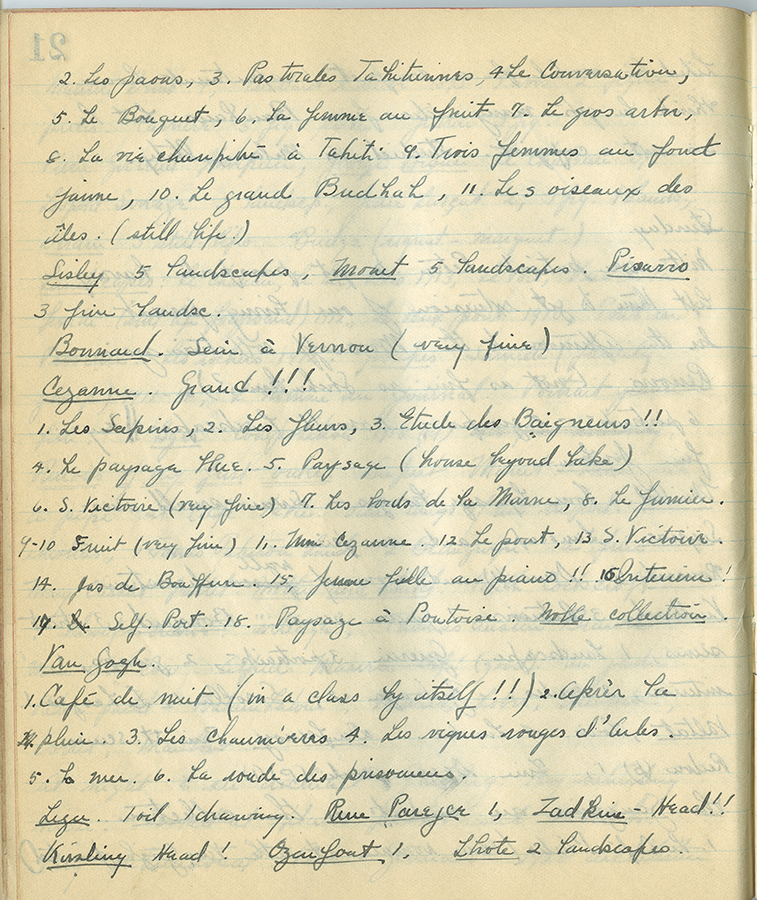 21
2. Les paons, 3. Pastorales Tahitiennes, 4 Le Conversation,
5. Le Bouquet, 6. La femme au fruit 7. Le gros arbre,
8. La vie champêtre à Tahiti 9. Trois femmes au fond
jaune, 10. Le grand Budhah, 11. Les oiseaux des
îles. (still life.)
Sisley 5 landscapes, Monet 5 landscapes. Pisarro
3 fine landsc.
Bonnard. Seine à Vernon (very fine)
Cezanne. Grand!!!
1. Les Sapins, 2. Les fleurs, 3. Etude des Baigneurs!!
4. Le paysage blue. 5. Paysage (house beyond lake)
6. S. Victoire (very fine) 7. Les bords de la Marne, 8. Le fumier.
9-10 Fruit (very fine) 11. Mme Cezanne. 12 Le pont, 13 S. Victoire.
14. Jas de Bouffan. 15, jeune fille au piano!! 16 Interieur!
17. Self Port. 18. Paysage à Pontoise. Wolle collection.
Van Gogh.
1. Café de nuit (in a class by itself!!) 2. Après la
pluie. 3. Les chaumières 4. Les vignes rouges d'Arles.
5. La mer. 6. La ronde des prisonniers.
Leger. 1 oil 1 drawing. Rene 1, Zadkine - Head!!
Kissling Head! Ozenfant 1, Lhote 2 landscapes.